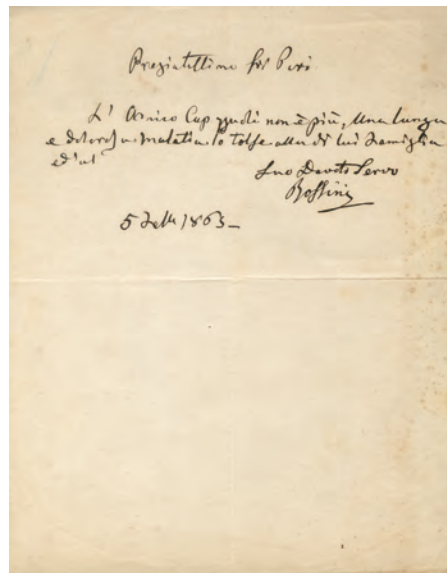 Pregiatissimo Sig Peri
L' Amico Cap non è più, Una lunga
e dolorosa malatia lo tolse alla di lui Famiglia
ed'a
Suo Devoto Servo
Rossini
5 1863_